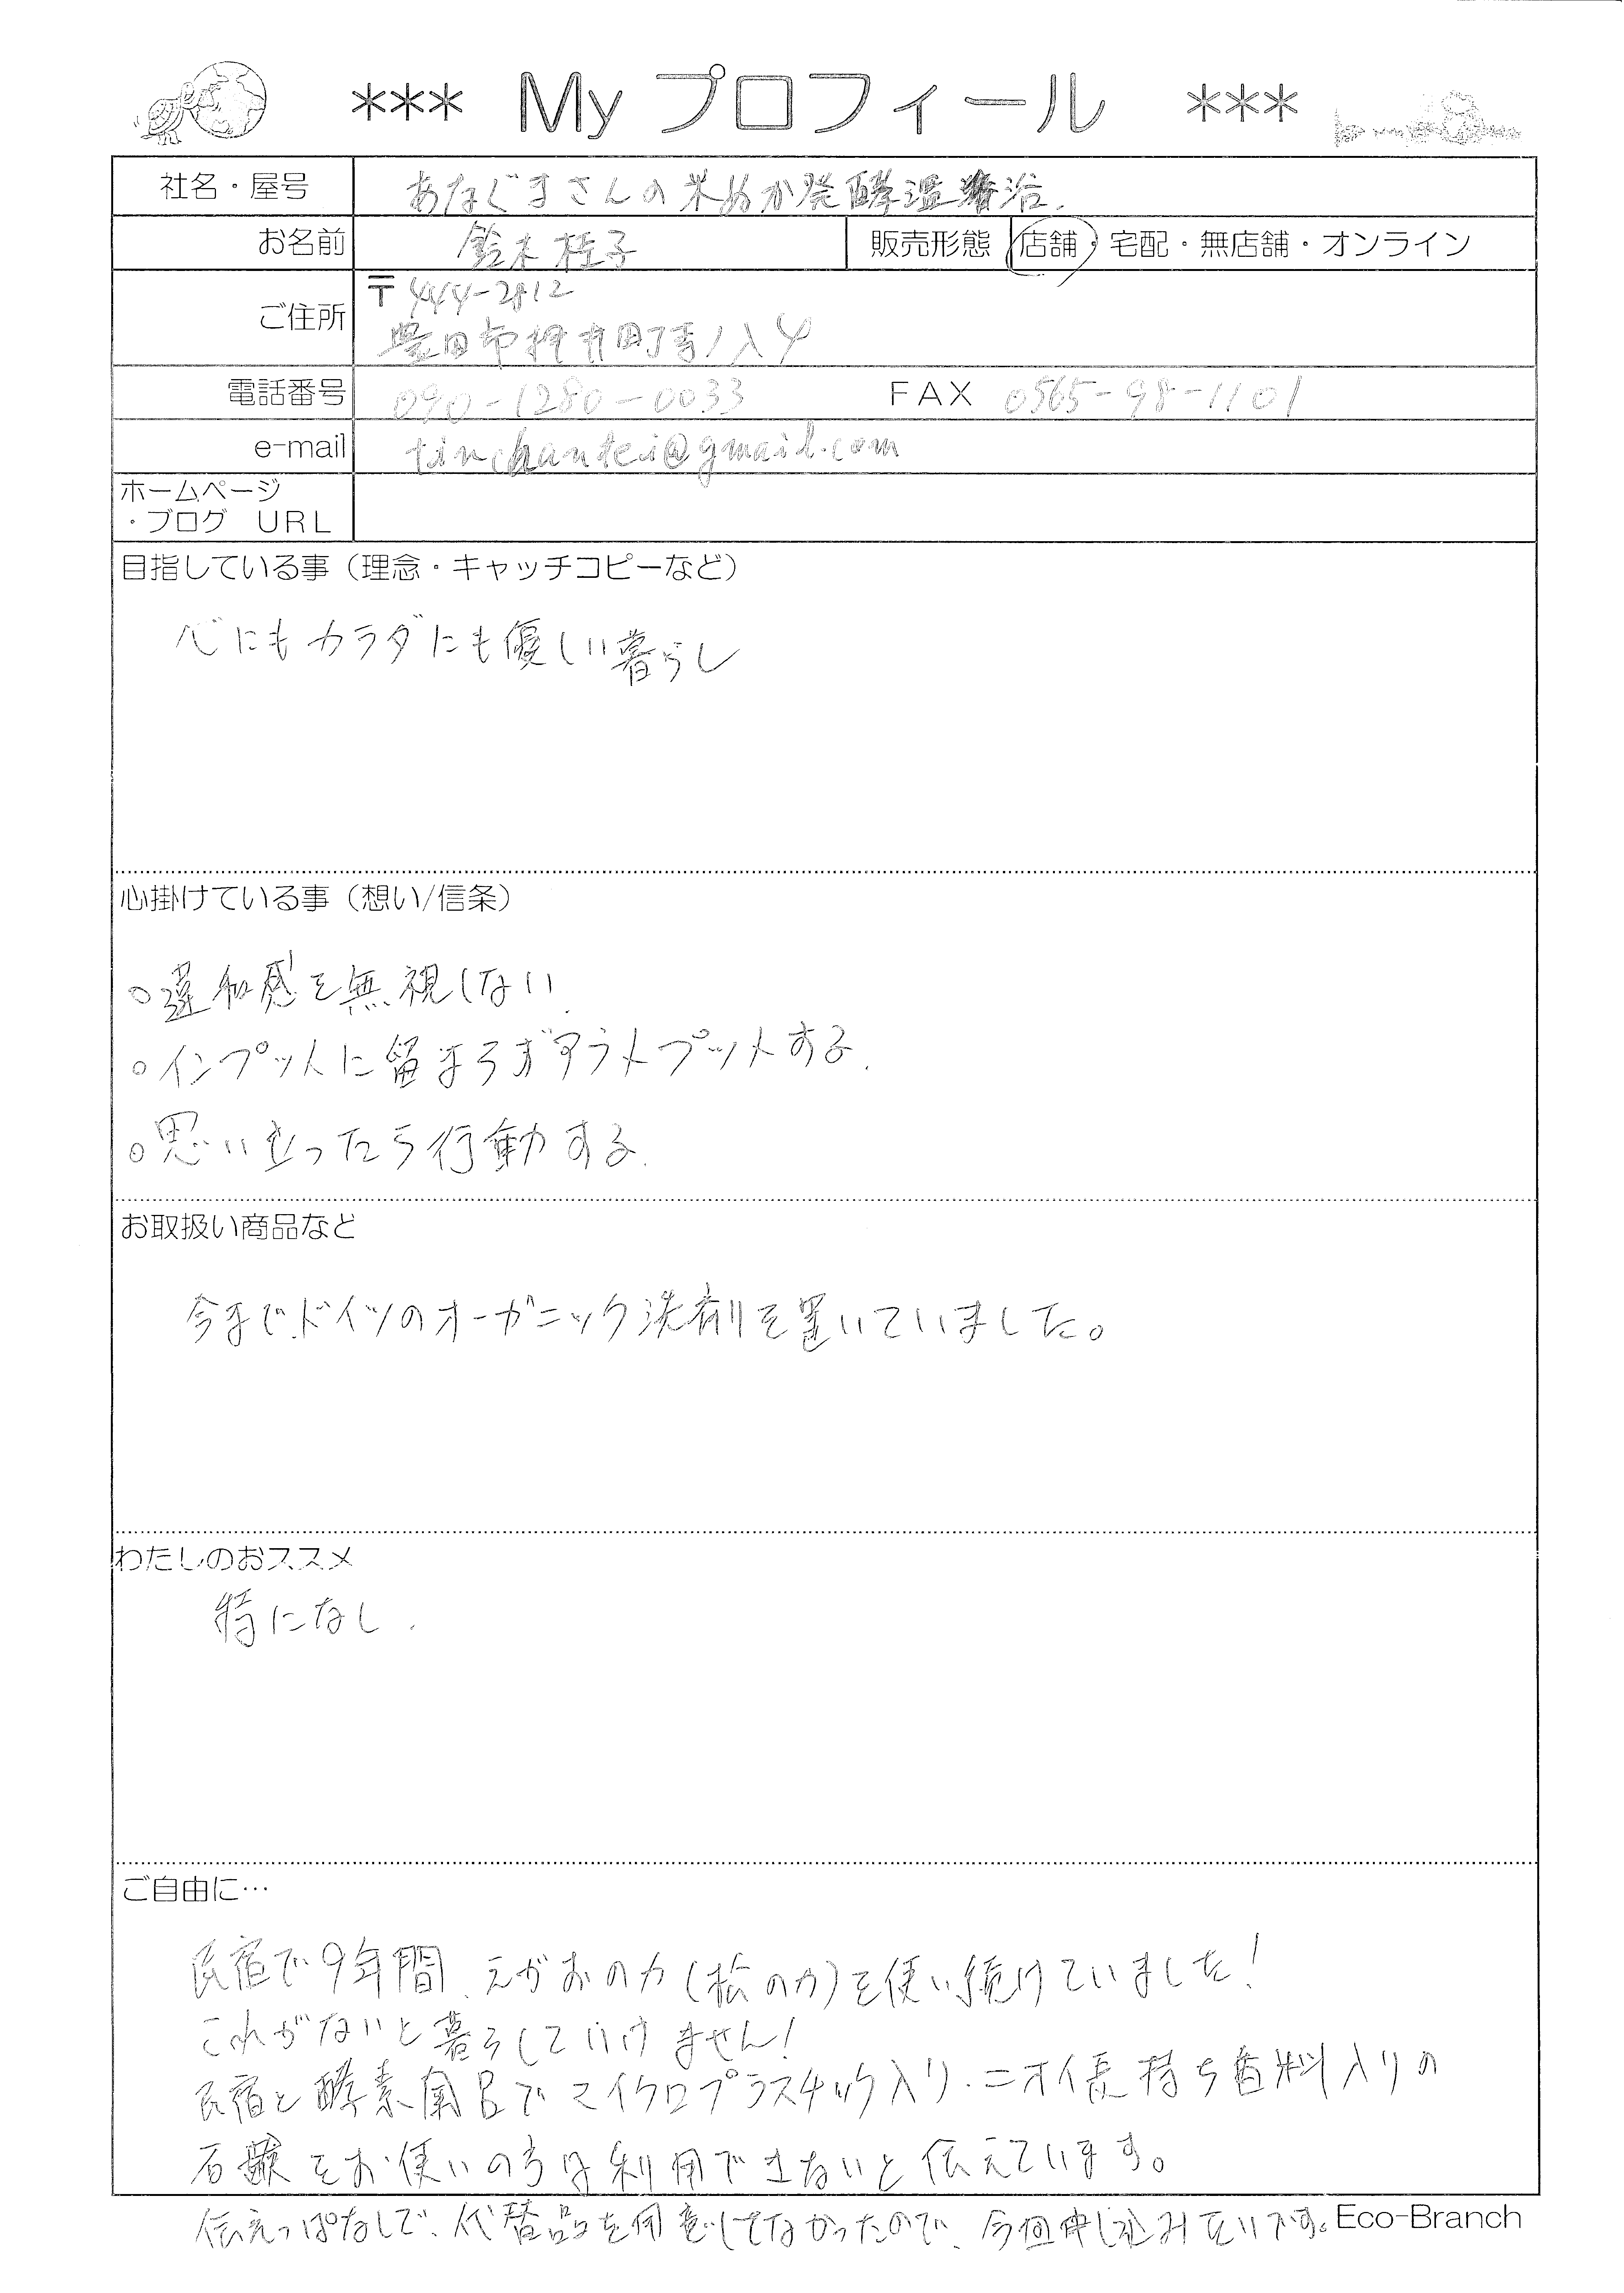 *** My プロフィール ***
社名・屋号 あなぐまさんの米ぬか発酵温浴.
お名前 鈴木桂子 販売形態 店舗・宅配・無店舗・オンライン
ご住所 〒444-2812
豊田市押井町寺ノ入4
電話番号 090-1280-0033 FAX 0565-98-1101
e-mail tinchantei@gmail.com
ホームページ
・ブログ URL
目指している事(理念・キャッチコピーなど)
心にもカラダにも優しい暮らし
心掛けている事(想い/信条)
○違和感を無視しない.
○インプットに留まらずアウトプットする.
○思い立ったら行動する.
お取扱い商品など
今まで、ドイツのオーガニック洗剤を置いていました。
わたしのおススメ
特になし.
ご自由に…
民宿で9年間、えがおの力(松の力)を使い続けていました!
これがないと暮らしていけません!
民宿と酵素風呂でマイクロプラスチック入り・ニオイ長持ち香料入りの
石鹸をお使いの方は利用できないと伝えています。
伝えっぱなしで、代替品を用意してなかったので、今回申し込みたいです。
Eco-Branch